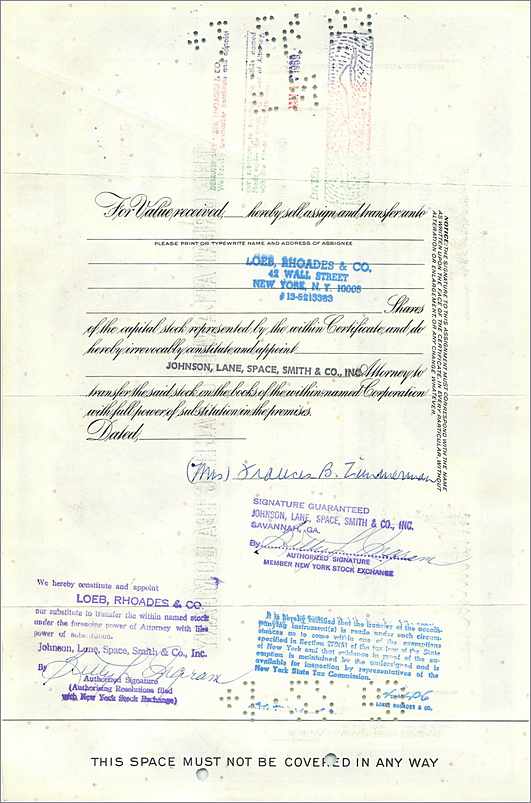 For Value received, hereby sell, assign and transfer unto
PLEASE PRINT OR TYPEWRITE NAME AND ADDRESS OF ASSIGNEE
LOEB, RHOADES & CO.
42 WALL STREET
NEW YORK, N. Y. 10005
#13-5213383
Shares
of the capital stock represented by the within Certificate, and do
hereby irrevocably constitute and appoint
JOHNSON, LANE, SPACE, SMITH & CO., INC. Attorney to
transfer the said stock on the books of the within named Corporation
with full power of substitution in the premises.
Dated,
NOTICE: THE SIGNATURE TO THIS ASSIGNMENT MUST CORRESPOND WITH THE NAME
AS WRITTEN UPON THE FACE OF THE CERTIFICATE IN EVERY PARTICULAR, WITHOUT
ALTERATION OR ENLARGEMENT OR ANY CHANGE WHATEVER.
(Mrs) Frances B. Zimmerman
SIGNATURE GUARANTEED
JOHNSON, LANE, SPACE, SMITH & CO., INC.
SAVANNAH, GA.
By
AUTHORIZED SIGNATURE
MEMBER NEW YORK STOCK EXCHANGE
We hereby constitute and appoint
LOEB, RHOADES & CO.
our substitute to transfer the within named stock
under the foregoing power of Attorney with like
power of substitution.
Johnson, Lane, Space, Smith & Co., Inc.
By
Authorized Signature
(Authorizing Resolutions filed
with New York Stock Exchange)
It is hereby certified that the transfer of the accom-
panying instrument(s) is made under such circum-
stances as to come within one of the exemptions
specified in Section 270(5) of the tax law of the State
of New York and that evidence in proof of the ex-
emption is maintained by the undersigned and is
available for inspection by representatives of the
New York State Tax Commission.
LOEB, RHOADES & CO.
THIS SPACE MUST NOT BE COVERED IN ANY WAY